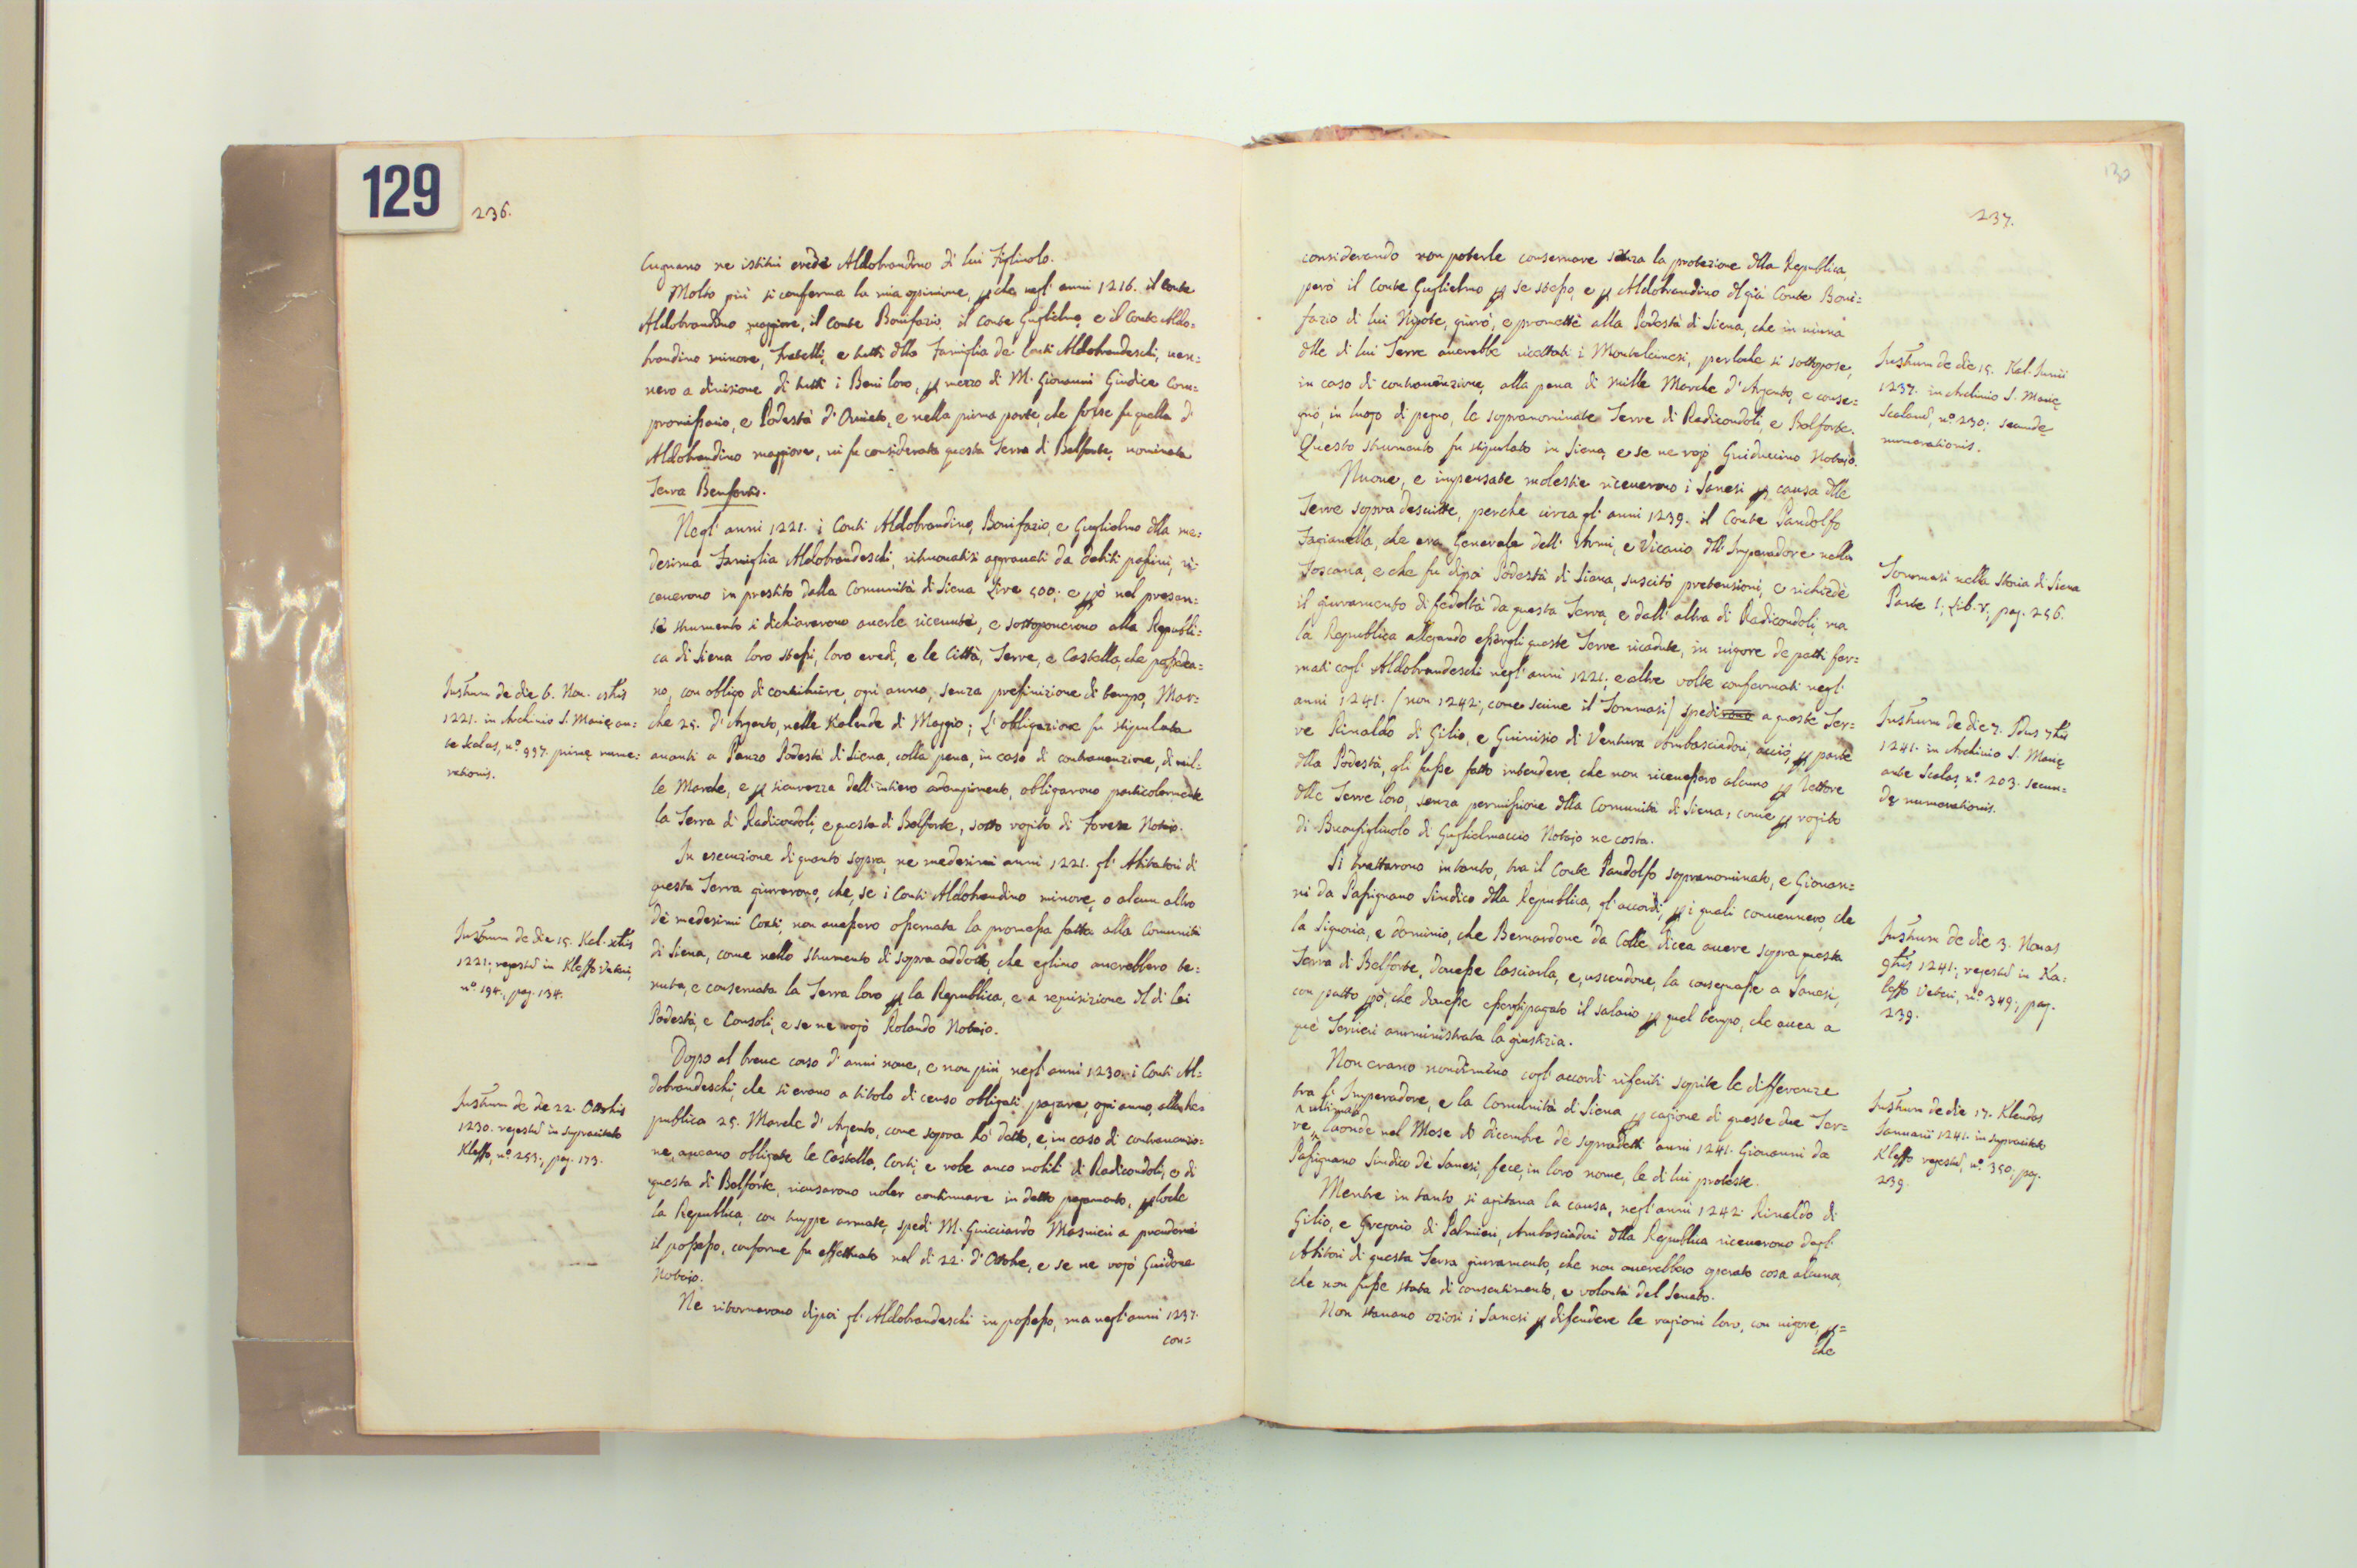 129
236.
Cugnano ne istituì erede Aldobrandino di lui Figliuolo.
Molto più si conferma la mia opinione, pche, negl' anni 1216. il Conte
Aldobrandino maggiore, il Conte Bonifazio, il Conte Guglielmo, e il Conte Aldo=
brandino minore, Fratelli, e tutti dlla Famiglia de Conti Aldobrandeschi, uen=
nero a diuisione di tutti i Beni loro, p mezzo di M. Giouanni Giudice Com=
promissario, e Podestà d' Oruieto, e nella prima parte, che forse fu quella d'
Aldobrandino maggiore, ui fu considerata questa Terra di Belforte, nominata
Terra Benfortis.
Negl' anni 1221. i Conti Aldobrandino, Bonifazio, e Guglielmo dlla me=
desima Famiglia Aldobrandeschi, ritrouatisi aggrauati da debiti passiui, ri=
ceuerono in prestito dalla Comunità di Siena Lire 500; e pò nel presen=
te strumento si dichiararono auerle riceuute, e sottoponerono alla Republi=
ca di Siena loro stessi, loro eredi, e le Città, Terre, e Castella, che possedea=
no, con obligo di contribuire, ogni anno, senza prefinizione di tempo, Mar=
che 25. d' Argento, nelle Kalende di Maggio; L' obligazione fu stipulata
auanti a Panzo Podestà di Siena, colla pena, in caso di contrauenzione, di mil=
le Marche, e p sicurezza dell' intiero adempimento, obligarono particolarmente
la Terra di Radicondoli, e questa di Belforte, sotto rogito di Forese Notajo.
In esecuzione di quanto sopra, ne medesimi anni 1221. gl' Abitatori di
questa Terra giurarono, che, se i Conti Aldobrandino minore, o alcun altro
de medesimi Conti, non auessero osseruata la promessa fatta alla Comunità
di Siena, come nello strumento di sopra addotto, che eglino auerebbero te=
nuta, e conseruata la Terra loro p la Republica, e a requisizione dl di lei
Podestà, e Consoli, e se ne rogò Rolando Notajo.
Dopo al breue corso d' anni noue, e non più, negl' anni 1230. i Conti Al=
dobrandeschi, che si erano a titolo di censo obligati pagare, ogni anno, alla Re=
publica 25. Marche d' Argento, come sopra hò detto, e, in caso di contrauenzio=
ne, aueano obligate le Castella, Corti, e robe anco mobili di Radicondoli, e di
questa di Belforte, ricusarono uoler continuare in detto pagamento, ploche
la Republica, con truppe armate, spedì M. Guicciardo Masnieri a prenderne
il possesso, conforme fu effettuato nel dì 22. d' Ottobre, e se ne rogò Guidone
Notajo.
Ne ritornarono dipoi gl' Aldobrandeschi in possesso, ma negl' anni 1237.
con=
Instrum de die 6. Non. 8bris
1221. in Archiuio S. Marię an=
te Scalas, n.º 997. primę nume=
rationis.
Instrum de die 15. Kal. xbris
1221; regestũ in Kleffo Veteri,
n.º 194., pag. 134.
Instrum de de 22. Octobris
1230. regestũ in supracitato
Kleffo, n.º 253., pag. 173.
130
237.
considerando non poterle conseruare senza la protezione dlla Republica,
però il Conte Guglielmo p se stesso, e p Aldobrandino dl già Conte Boni=
fazio di lui Nipote, giurò, e promettè alla Podestà di Siena, che in niuna
dlle di lui Terre auerebbe ricettati i Montalcinesi, perloche si sottopose,
in caso di contrauenzione, alla pena di mille Marche d' Argento, e conse=
gnò, in luogo di pegno, le sopranominate Terre di Radicondoli, e Belforte.
Questo strumento fu stipulato in Siena, e se ne rogò Guiduccino Notajo.
Nuoue, e impensate molestie riceuerono i Sanesi p causa dlle
Terre sopra descritte, perche circa gl' anni 1239. il Conte Pandolfo
Fagianella, che era Generale dell' Armi, e Vicario dll' Imperadore nella
Toscana, e che fu dipoi Podestà di Siena, suscitò pretensioni, e richiedè
il giuramento di fedeltà da questa Terra, e dall' altra di Radicondoli, ma
la Republica allegando essergli queste Terre ricadute, in uigore de patti for=
mati cogl' Aldobrandeschi negl' anni 1221; e altre volte confermati negl'
anni 1241. (non 1242., come scriue il Tommasi) spedirono a queste Ter=
re Rinaldo di Gilio, e Guinisio di Ventura Ambasciadori, acciò, p parte
dlla Podestà, gli fusse fatto intendere, che non riceuessero alcuno p Rettore
dlle Terre loro, senza permissione dlla Comunità di Siena, come p rogito
di Buonfigliuolo di Guglielmaccio Notajo ne costa.
Si trattarono intanto, tra il Conte Pandolfo sopranominato, e Giouan=
ni da Passignano Sindico dlla Republica, gl' accordi, p i quali conuennero, che
la Signoria, e dominio, che Bernardone da Colle dicea auere sopra questa
Terra di Belforte, douesse lasciarla, e, uscendone, la consegnasse a Sanesi,
con patto pò, che douesse essergli pagato il salario p quel tempo, che auea a
que' Terrieri amministrata la giustizia.
Non erano nondimeno cogl' accordi riferiti sopite le differenze
tra l' Imperadore, e la Comunità di Siena p cagione di queste due Ter=
re, ultimate, laonde nel Mese di dicembre de sopradetti anni 1241. Giouanni da
Passignano Sindico de Sanesi, fece, in loro nome, le di lui proteste.
Mentre in tanto si agitaua la causa, negl' anni 1242. Rinaldo di
Gilio, e Gregorio di Palmieri, Ambasciadori dlla Republica riceuerono dagl'
Abitori di questa Terra giuramento, che non auerebbero operato cosa alcuna,
che non fusse stata di consentimento, e volontà del Senato.
Non stauano oziosi i Sanesi p difendere le ragioni loro, con uigore, p=
che
Instrum de die 15. Kal. Junii
1237. in Archiuio S. Marię
Scalarũ, n.º 230; secundę
numerationis.
Tommasi nella Storia di Siena
Parte I, Lib. V, pag. 256.
Instrum de die 7. Idus 7bris
1241. in Archiuio S. Marię
ante Scalas, n.º 203. secun=
dę numerationis.
Instrum de die 3. Nonas
9bris 1241., regestũ in Ka=
leffo Veteri, n.º 349., pag.
239.
Instrum de die 17. Klendas
Januarii 1241. in supracitato
Kleffo regestũ, n.º 350, pag.
239.